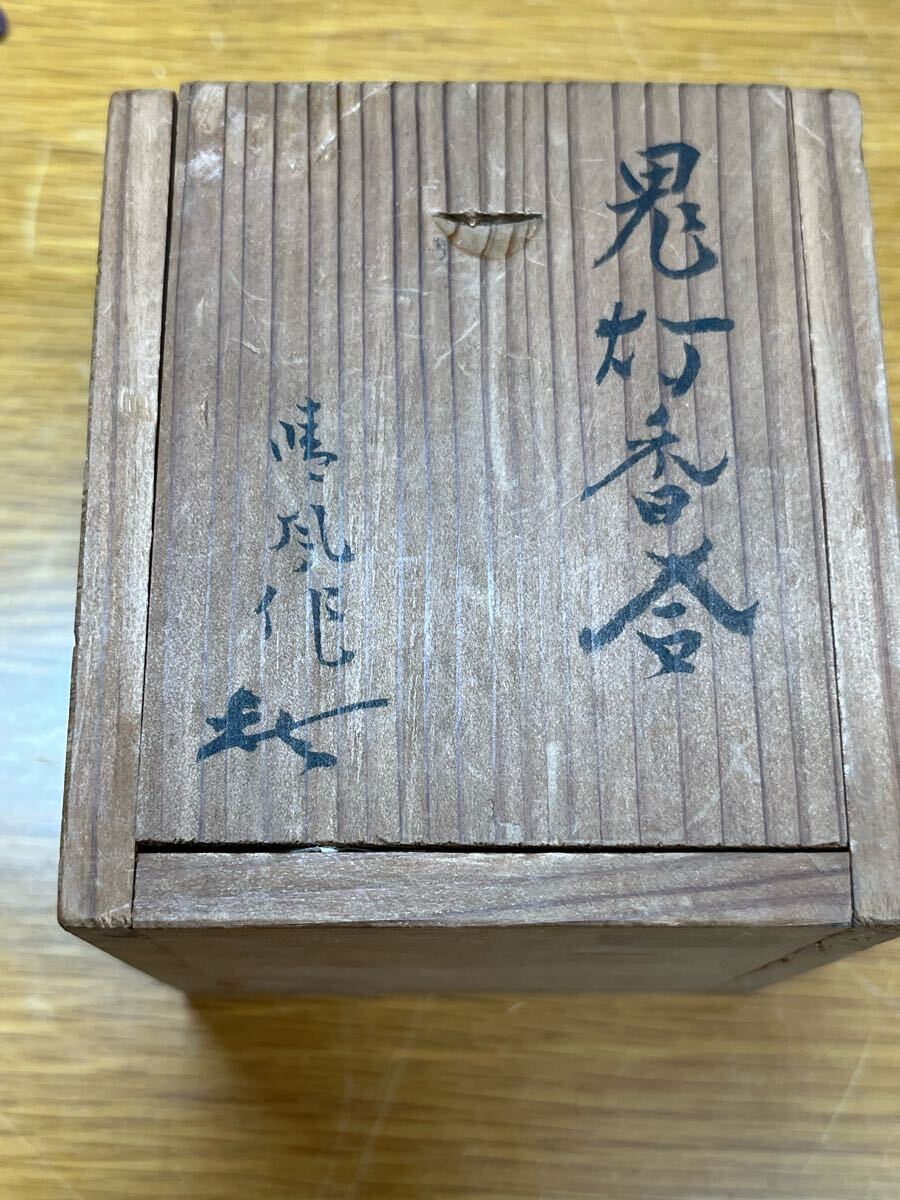 鬼灯香合
晴風作